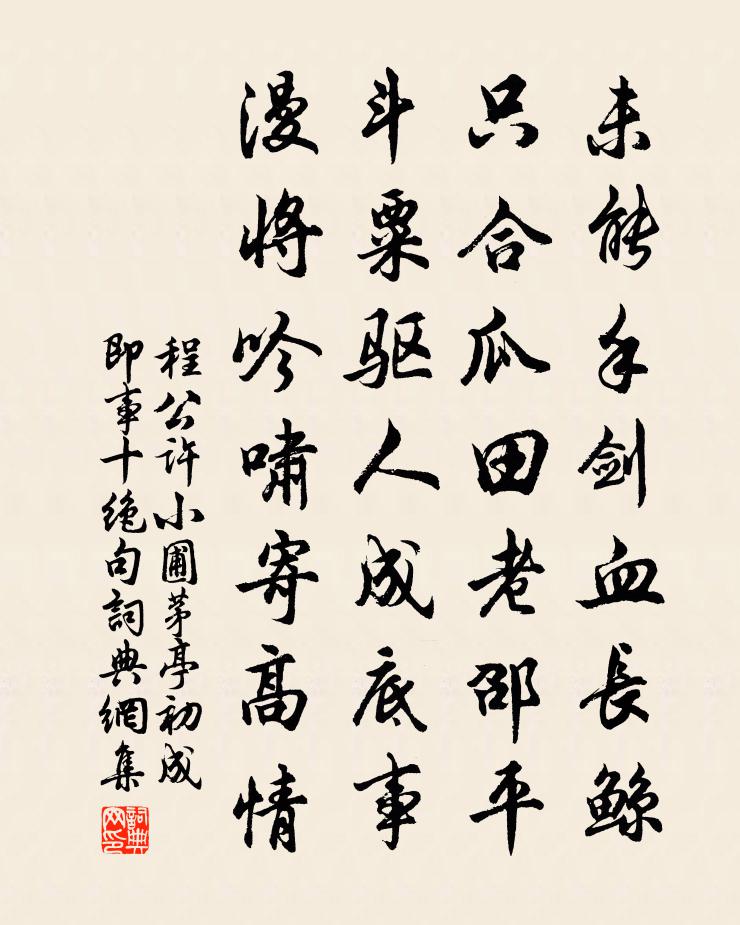 未能手劍血長鯨
只合瓜田老邵平
斗粟驱人成底事
漫將吟嘯寄高情
程公许小圃茅亭初成
即事十絶句詞典網集
詞典网印